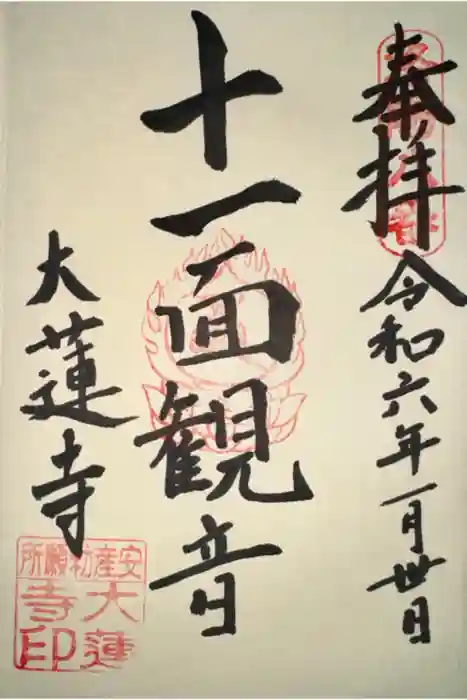 奉拝
令和六年一月卅日
十一面観音
大蓮寺
安産祈願所
大蓮寺印